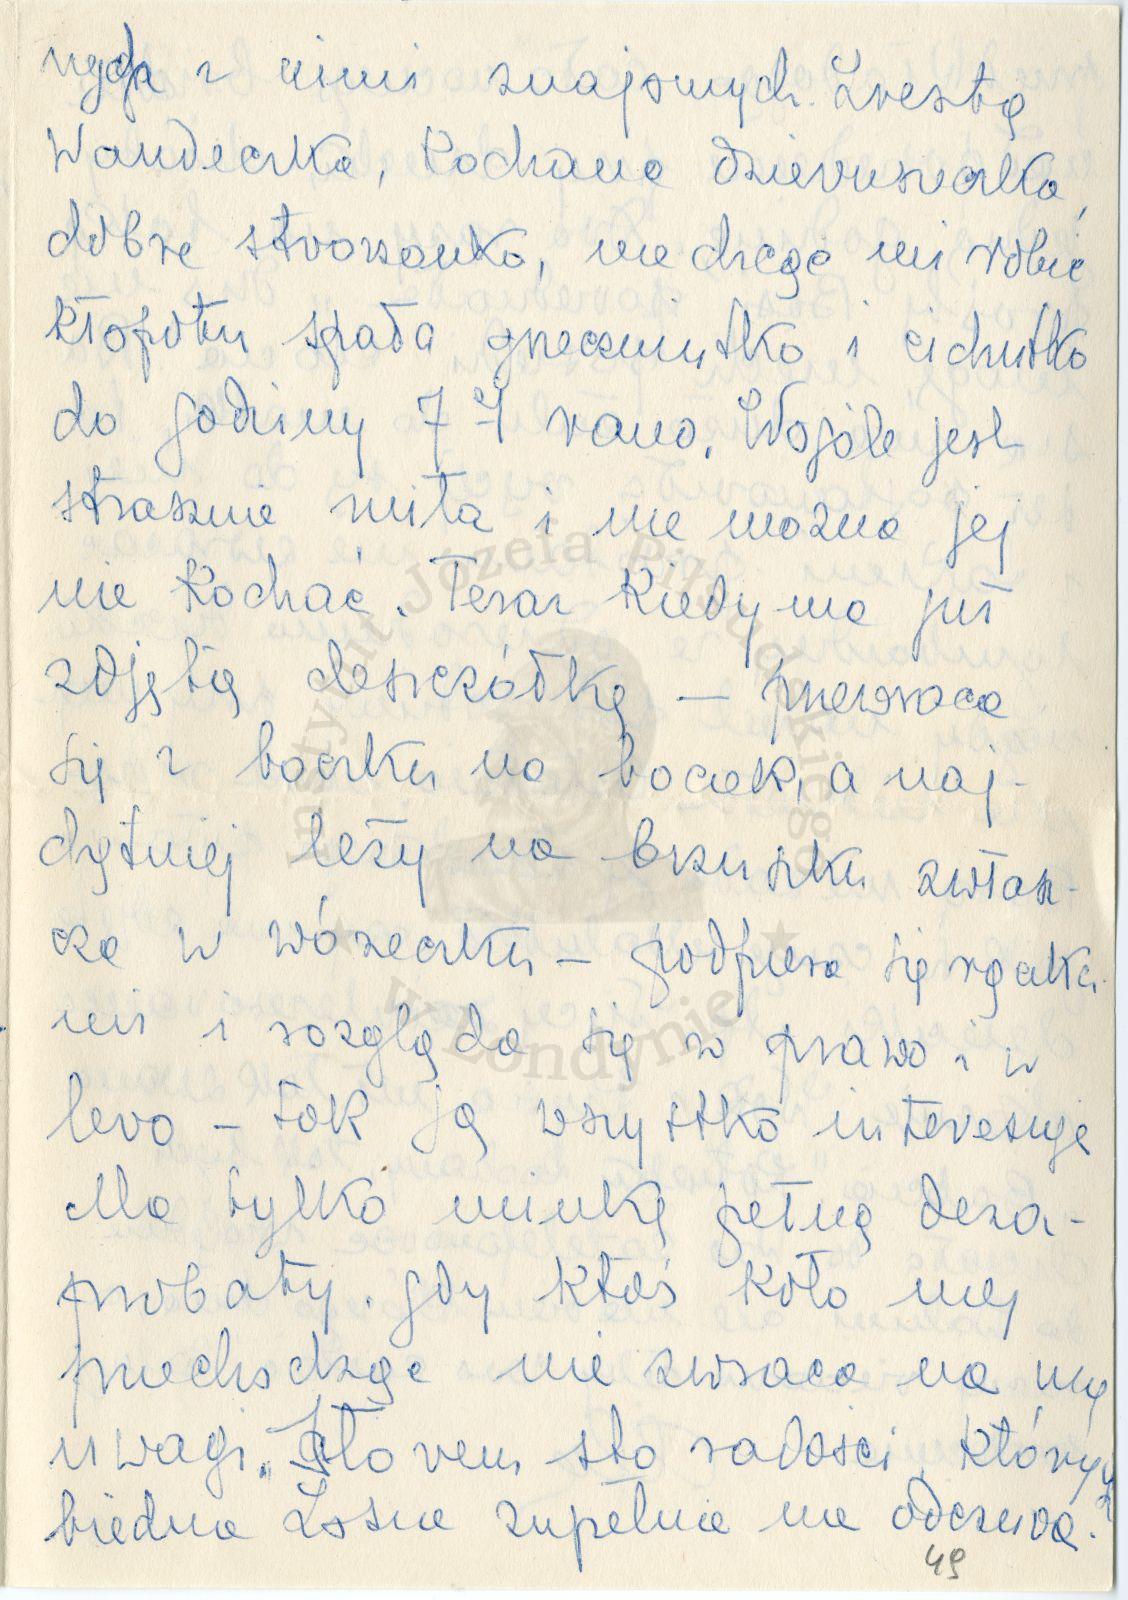 z nimi znajomych. Zresztą
Wandeczka, kochana dziewuszeczka,
dobre stworzonko, nie chcąc mi robić
kłopotu spała grzeczniutko i cichutko
do godziny 7 rano. Wogóle jest
strasznie miła i nie można jej
nie kochać. Teraz kiedy ma już
zdjętą deszczółkę – przewraca
się z boczku na boczek, a naj-
chętniej leży na brzuszku zwłasz-
cza w wózeczku – podpiera się rączka-
mi i rozgląda się w prawo i w
lewo – tak ją wszystko interesuje
Ma tylko minkę pełną deza-
probaty, gdy ktoś koło niej
przechodząc nie zwraca na nią
uwagi. Słowem sto radości, których
biedna Zosia zupełnie nie odczuwa.
49
Instytut Józefa Piłsudskiego
w Londynie